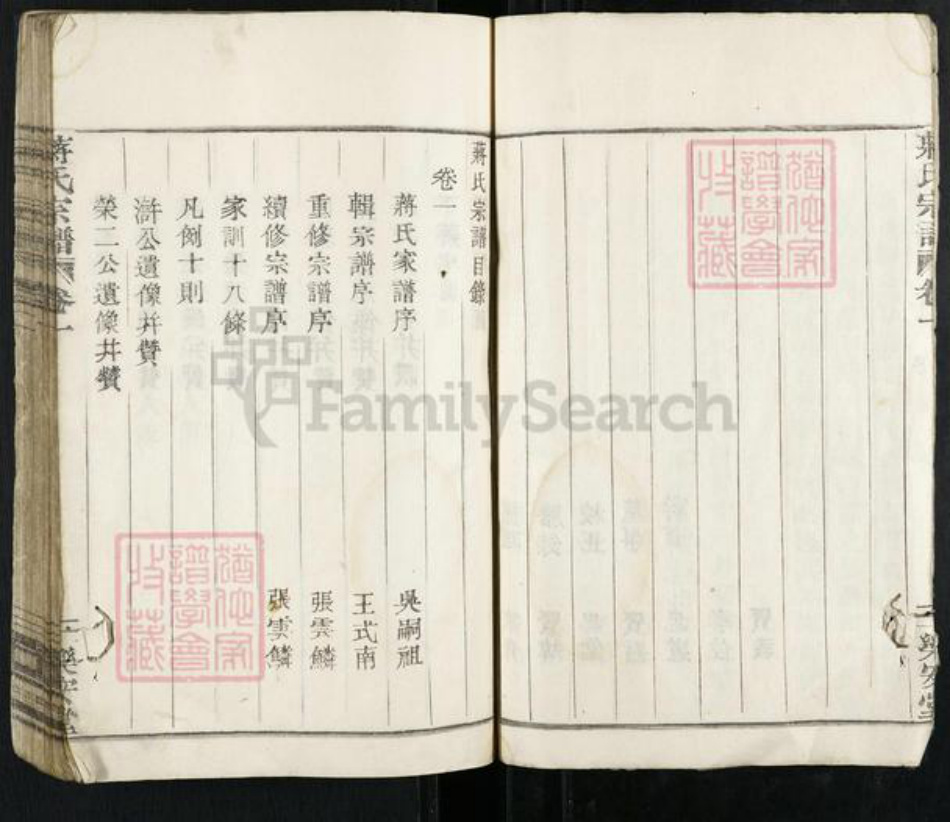 蔣氏宗譜
卷一
樂安堂
猶他家
譜學會
收藏
蔣氏宗譜目錄
卷一
蔣氏家譜序 吳嗣祖
輯宗譜序 王式南
重修宗譜序 張雲鱗
續修宗譜序 張雲鱗
家訓十八條
凡例十則
澣公遺像并贊
榮二公遺像并贊
猶他家
譜學會
收藏
蔣氏宗譜
卷一
一
樂安堂
FamilySearch